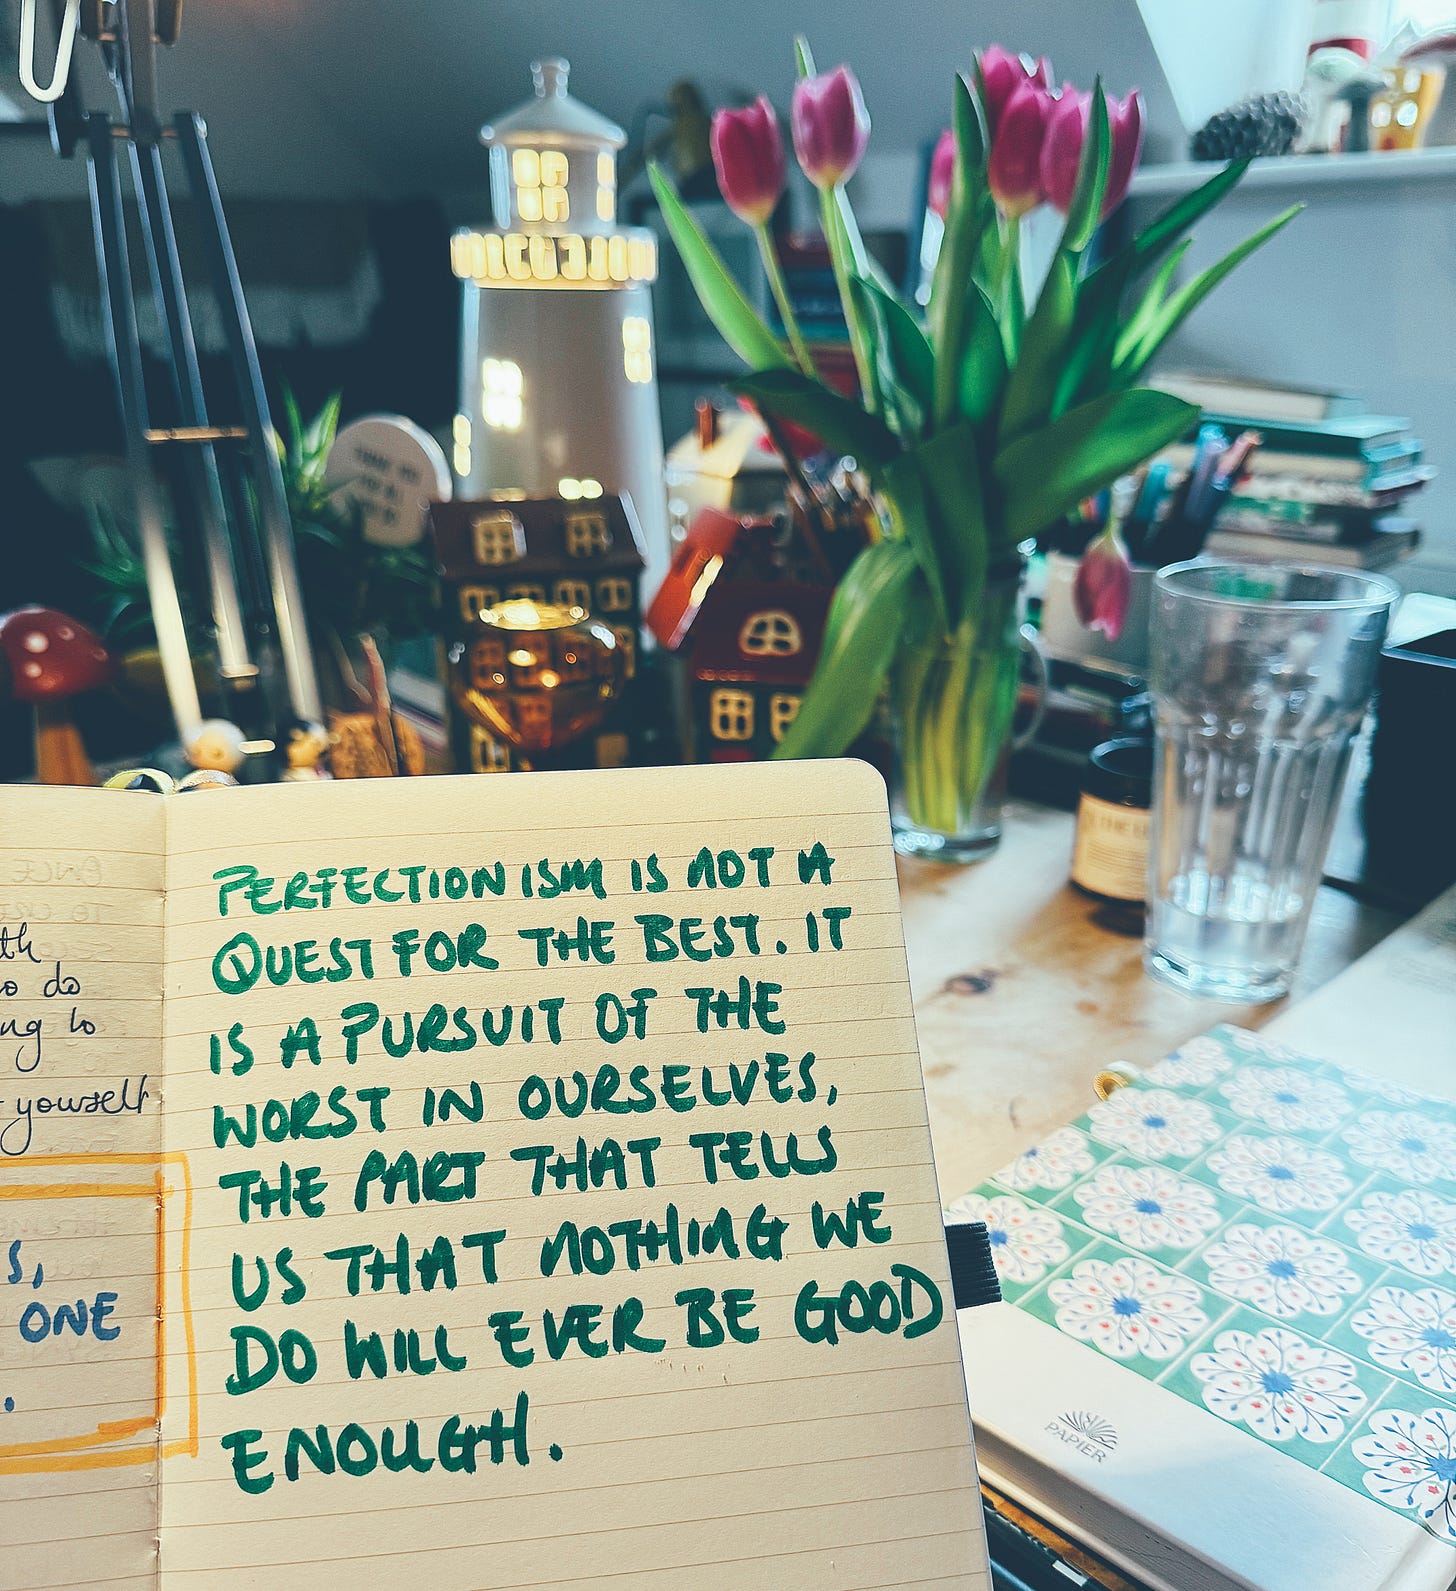 th
o do
ng to
yourself
S,
ONE
.
PERFECTIONISM IS NOT A
QUEST FOR THE BEST. IT
IS A PURSUIT OF THE
WORST IN OURSELVES,
THE PART THAT TELLS
US THAT NOTHING WE
DO WILL EVER BE GOOD
ENOUGH.
PAPIER